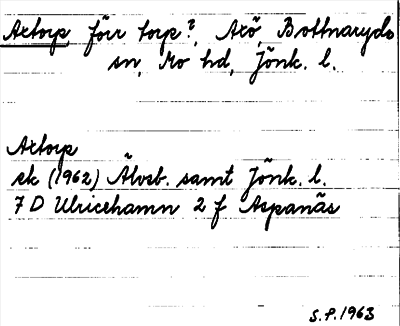 Axtorp förr torp?, Axö, Bottnaryds
sn, Mo hd, Jönk. l.
Axtorp
ek (1962) Älvsb. samt Jönk. l.
7 D Ulricehamn 2 f Aspanäs
S.P. 1963